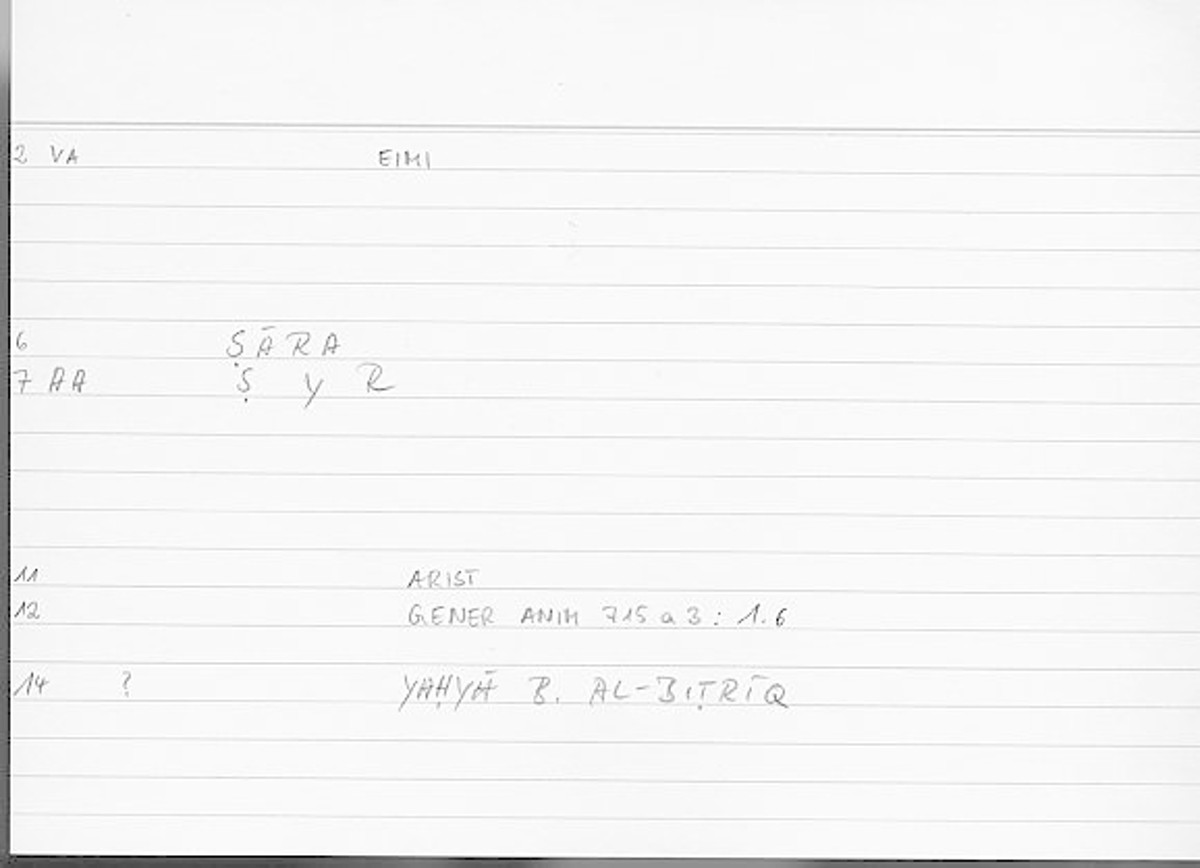 2 VA EIMI
6 ṢĀRA
7 AA Ṣ Y R
11 ARIST
12 GENER ANIM 715 a 3 : 1.6
14 ? YAḤYĀ B. AL-BIṬRĪQ